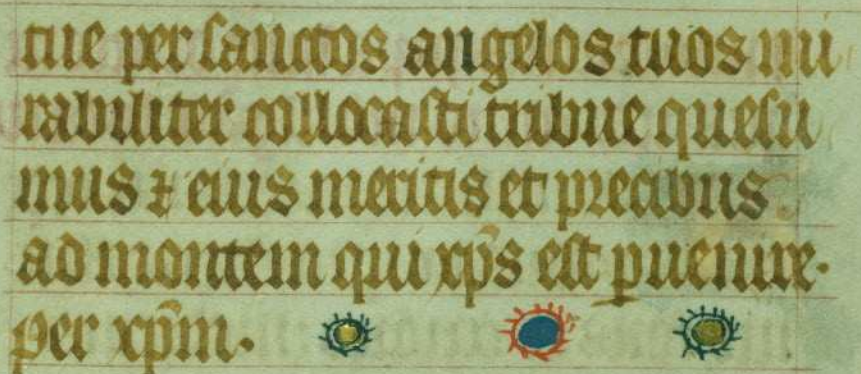 tue per sanctos angelos tuos mi
rabiliter collocasti tribue quesu
mus ⁊ eius meritis et precibus
ad montem qui xp̄s est ꝑuenire.
per xp̄m.